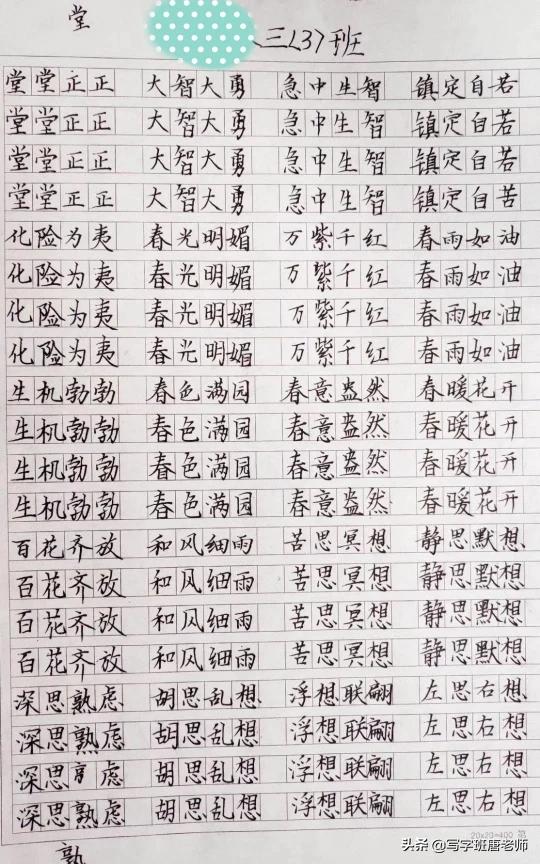 堂
三(3)班
堂堂正正 大智大勇 急中生智 镇定自若
堂堂正正 大智大勇 急中生智 镇定自若
堂堂正正 大智大勇 急中生智 镇定自若
堂堂正正 大智大勇 急中生智 镇定自苦
化险为夷 春光明媚 万紫千红 春雨如油
化险为夷 春光明媚 万紫千红 春雨如油
化险为夷 春光明媚 万紫千红 春雨如油
化险为夷 春光明媚 万紫千红 春雨如油
生机勃勃 春色满园 春意盎然 春暖花开
生机勃勃 春色满园 春意盎然 春暖花开
生机勃勃 春色满园 春意盎然 春暖花开
生机勃勃 春色满园 春意盎然 春暖花开
百花齐放 和风细雨 苦思冥想 静思默想
百花齐放 和风细雨 苦思冥想 静思默想
百花齐放 和风细雨 苦思冥想 静思默想
百花齐放 和风细雨 苦思冥想 静思默想
深思熟虑 胡思乱想 浮想联翩 左思右想
深思熟虑 胡思乱想 浮想联翩 左思右想
深思 虑 胡思乱想 浮想联翩 左思右想
深思熟虑 胡思乱想 浮想联翩 左思右想
20x20=400 第
熟
头条 @写字班唐老师